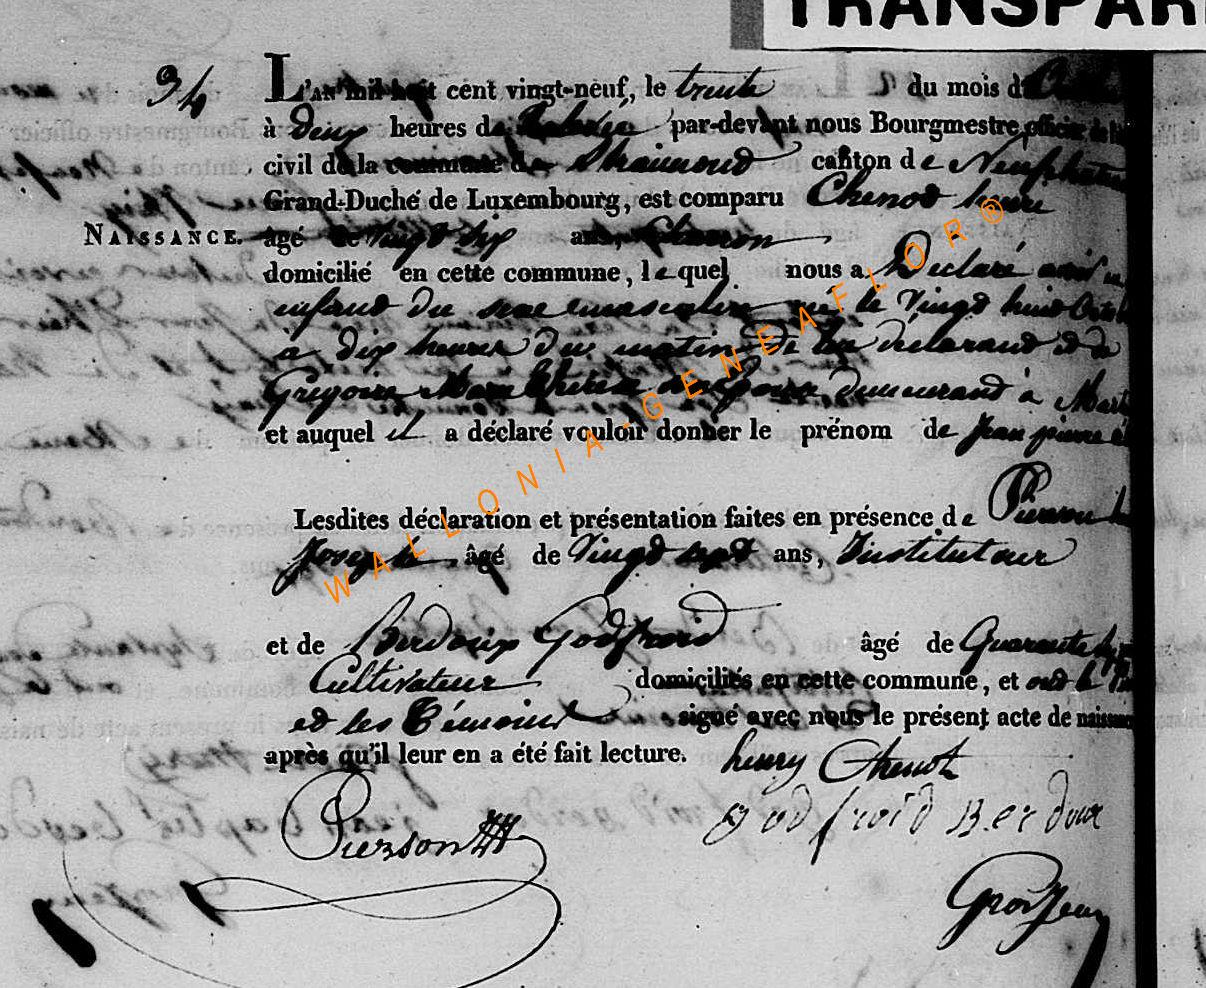 TRANSPAR
34
L'AN mil huit cent vingt-neuf, le trente du mois d'
à deux heures de par-devant nous Bourgmestre, officier de
civil de la commune de Straimont canton de Neufchateau
Grand-Duché de Luxembourg, est comparu Chenot henri
NAISSANCE. âgé de vingt six ans,
domicilié en cette commune, lequel nous a Declaré
enfant du sexe masculin né le Vingt huit Octo
à dix heures du matin de lui déclarant et de
Gregoire Marie therese demeurant à Mart
et auquel il a déclaré vouloir donner le prénom de Jean pierre
Lesdites déclaration et présentation faites en présence de Pierson
Joseph âgé de Vingt sept ans, Instituteur
et de Berdoux Godfroid âgé de Quarante
Cultivateur domiciliés en cette commune, et ont le
et les témoins signé avec nous le présent acte de naissance
après qu'il leur en a été fait lecture.
henry Chenot
Pierson
godfroid Berdoux
Grosjean
WALLONIA-GENEAFLOR®